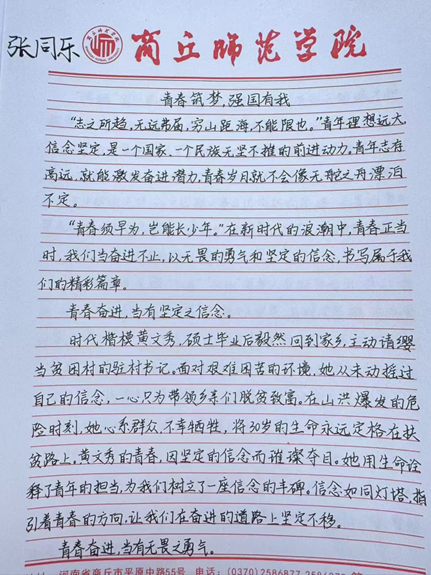 张同乐
商丘师范学院
青春筑梦,强国有我
“志之所趋,无远弗届,穷山距海,不能限也。”青年理想远大
信念坚定,是一个国家、一个民族无坚不摧的前进动力。青年志存
高远,就能激发奋进潜力,青春岁月就不会像无舵之舟漂泊
不定。
“青春须早为,岂能长少年。”在新时代的浪潮中,青春正当
时,我们当奋进不止,以无畏的勇气和坚定的信念,书写属于我
们的精彩篇章。
青春奋进,当有坚定之信念。
时代楷模黄文秀,硕士毕业后毅然回到家乡,主动请缨
当贫困村的驻村书记。面对艰难困苦的环境,她从未动摇过
自己的信念,一心只为带领乡亲们脱贫致富。在山洪爆发的危
险时刻,她心系群众,不幸牺牲,将30岁的生命永远定格在扶
贫路上。黄文秀的青春,因坚定的信念而璀璨夺目。她用生命诠
释了青年的担当,为我们树立了一座信念的丰碑。信念如同灯塔,指
引着青春的方向,让我们在奋进的道路上坚定不移。
青春奋进,当有无畏之勇气。
河南省商丘市平原中路55号 电话:(0370)2586877